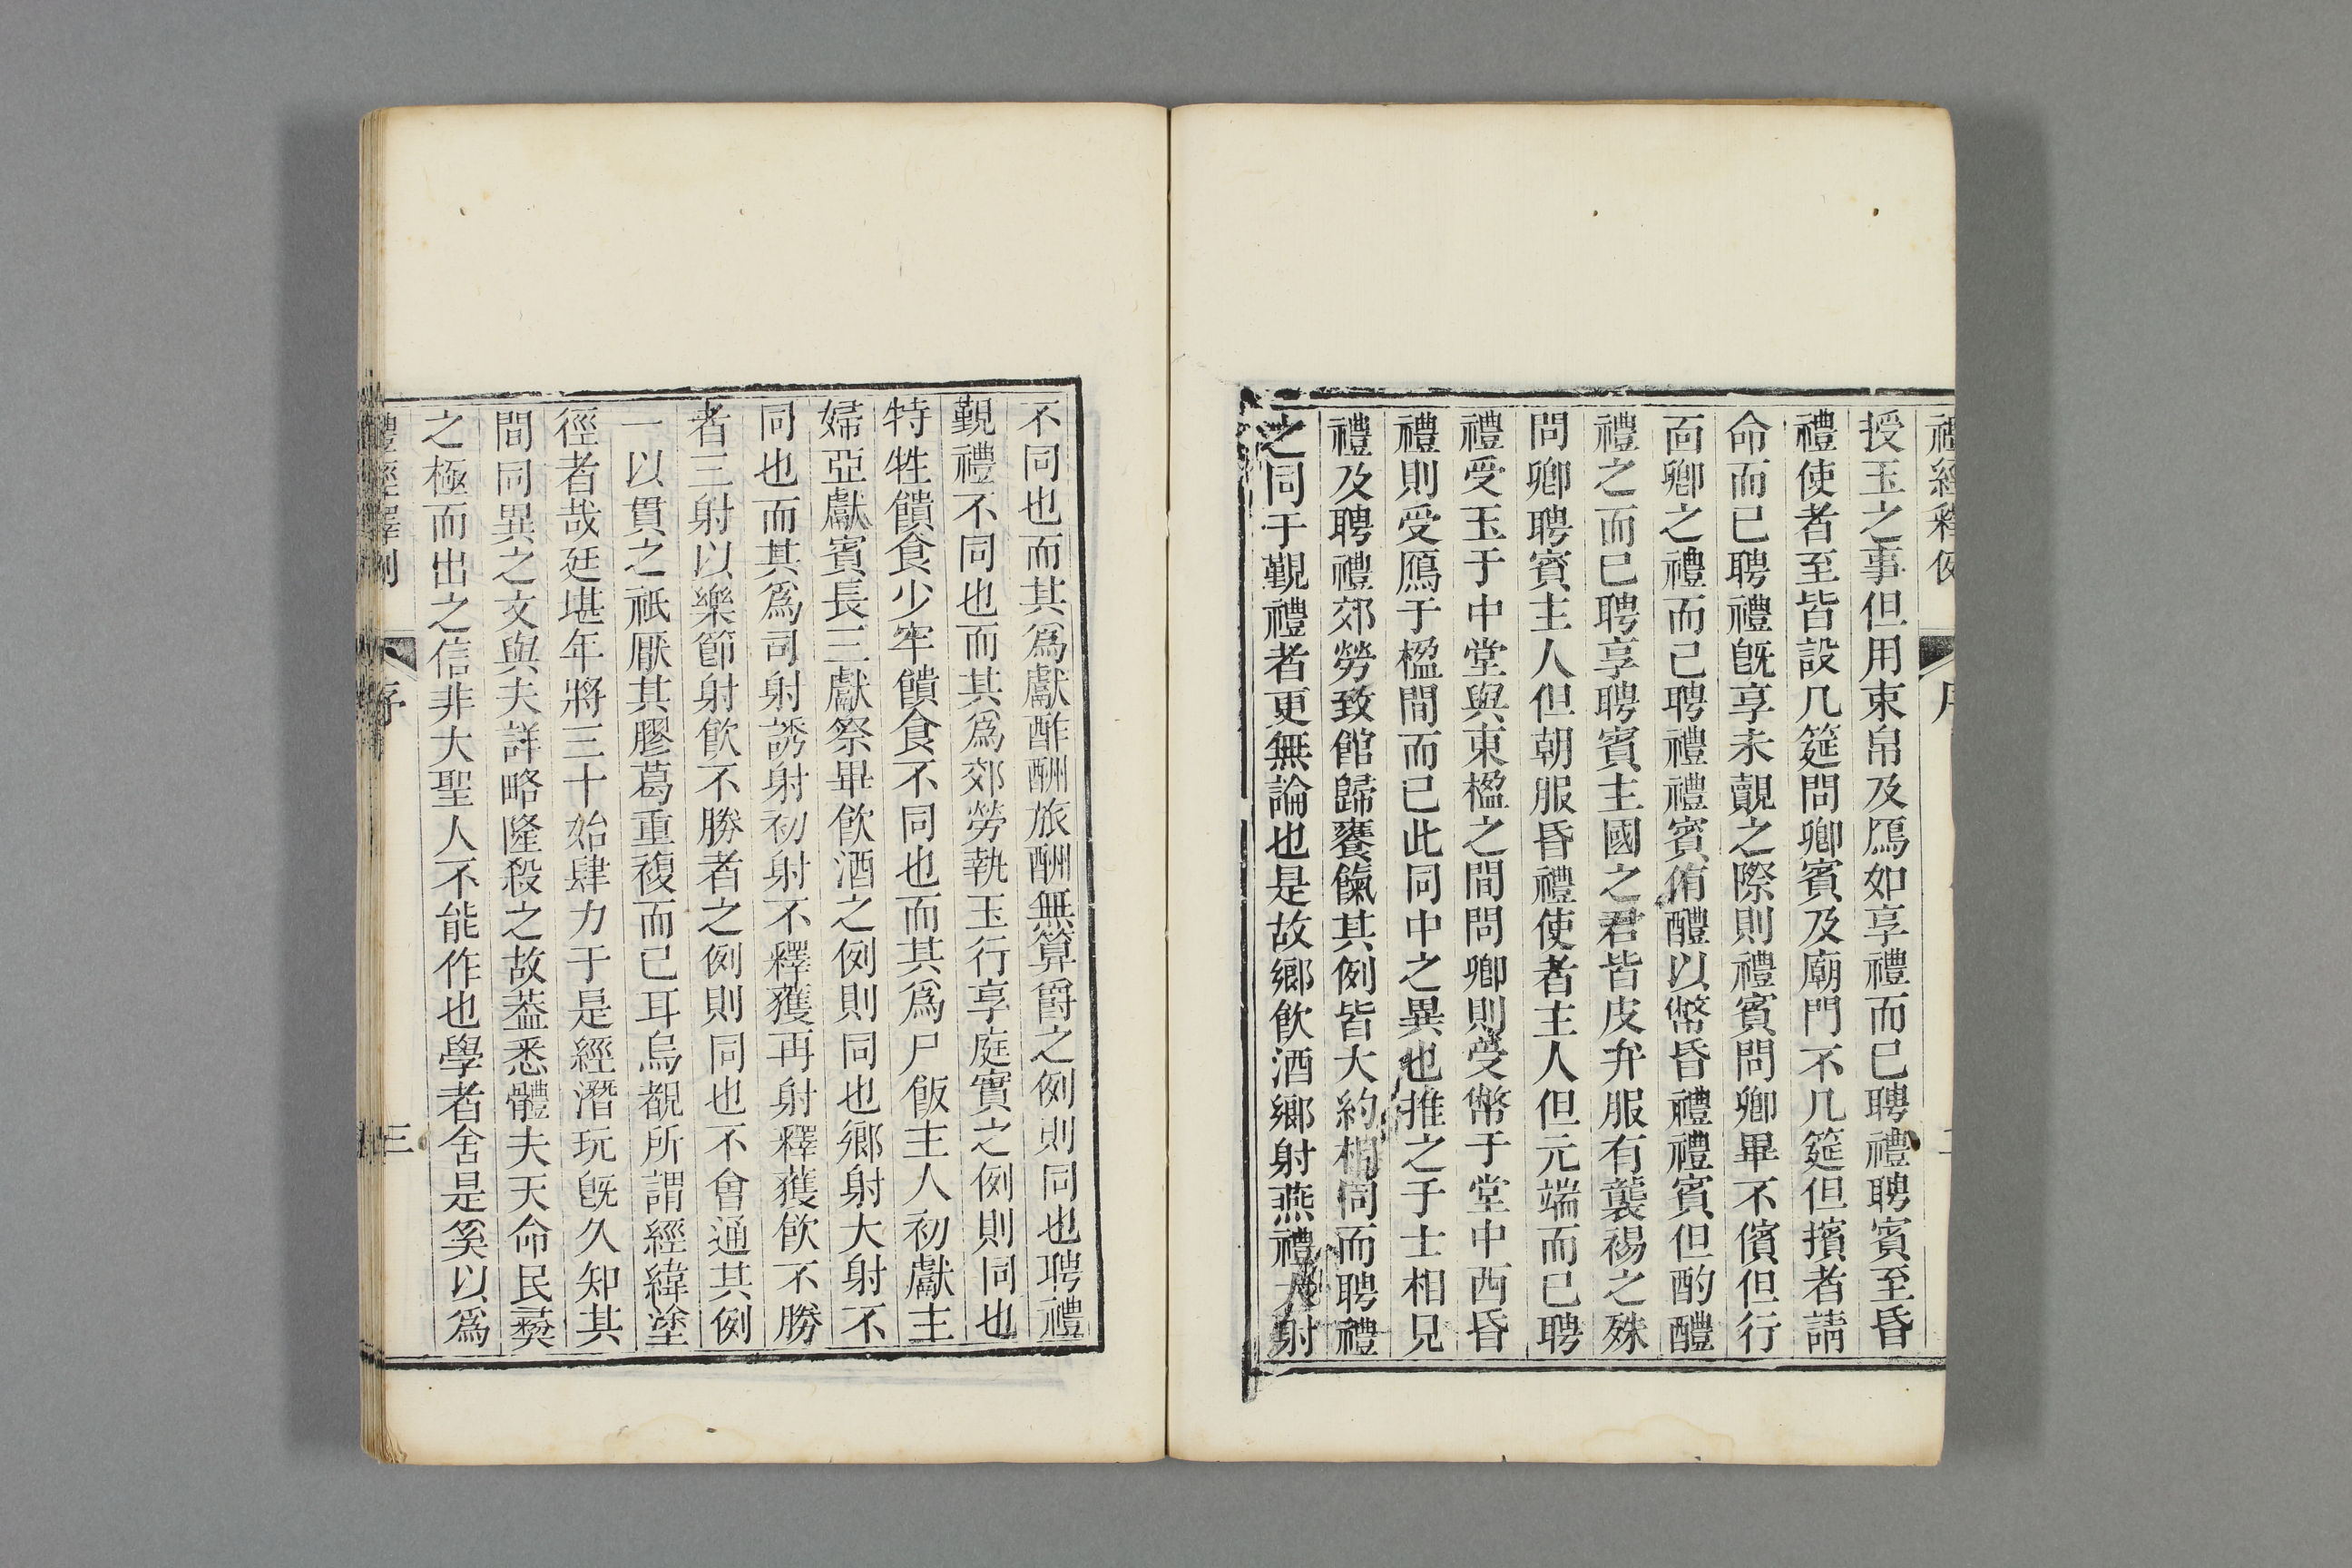 禮經釋例
序
授玉之事但用束帛及鴈如享禮而已聘禮聘賓至昏
禮使者至皆設几筵問卿賓及廟門不几筵但擯者請
命而已聘禮旣享未覿之際則禮賓問卿畢不儐但行
面卿之禮而已聘禮禮賓侑醴以幣昏禮禮賓但酌醴
禮之而已聘享聘賓主國之君皆皮弁服有襲裼之殊
問卿聘賓主人但朝服昏禮使者主人但元端而已聘
禮受玉于中堂與東楹之間問卿則受幣于堂中西昏
禮則受鴈于楹間而已此同中之異也推之于士相見
禮及聘禮郊勞致館歸饔餼其例皆大約相同而聘禮
之同于覲禮者更無論也是故鄉飲酒鄉射燕禮大射
不同也而其爲獻酢酬旅酬無算爵之例則同也聘禮
覲禮不同也而其爲郊勞執玉行享庭實之例則同也
特牲饋食少牢饋食不同也而其爲尸飯主人初獻主
婦亞獻賓長三獻祭畢飲酒之例則同也鄉射大射不
同也而其爲司射誘射初射不釋獲再射釋獲飲不勝
者三射以樂節射飲不勝者之例則同也不會通其例
一以貫之祇厭其膠葛重複而已耳烏覩所謂經緯塗
徑者哉廷堪年將三十始肆力于是經潛玩旣久知其
間同異之文與夫詳略隆殺之故葢悉體夫天命民彝
之極而出之信非大聖人不能作也學者舍是奚以爲
禮經釋例
序
三